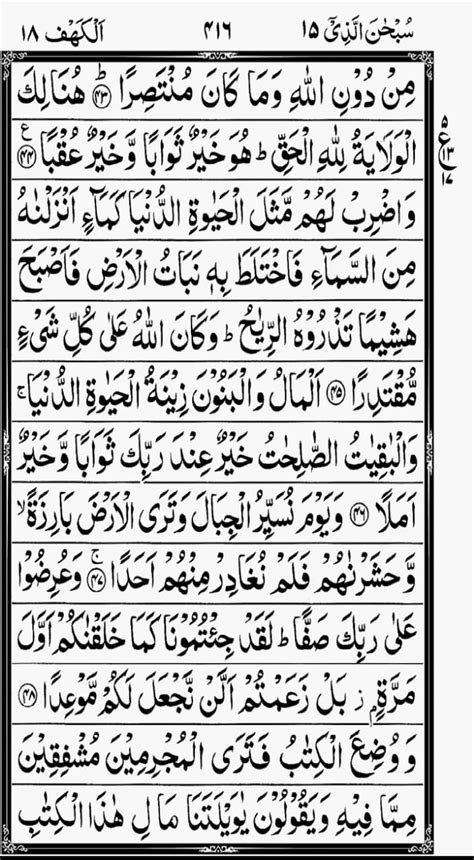 سُبْحٰنَ الَّذِیْۤ ١٥ ٤١٦ اَلْكَهْف ١٨
مِنْ دُوْنِ اللّٰهِ وَمَا كَانَ مُنْتَصِرًا ؕ ﴿٤٣﴾ هُنَالِكَ
الْوَلَايَةُ لِلّٰهِ الْحَقِّ ؕ هُوَ خَيْرٌ ثَوَابًا وَّخَيْرٌ عُقْبًا ﴿٤٤﴾ ع
٥ ع ١٣ ١٧
وَاضْرِبْ لَهُمْ مَّثَلَ الْحَيٰوةِ الدُّنْيَا كَمَآءٍ اَنْزَلْنٰهُ
مِنَ السَّمَآءِ فَاخْتَلَطَ بِهٖ نَبَاتُ الْاَرْضِ فَاَصْبَحَ
هَشِيْمًا تَذْرُوْهُ الرِّيٰحُ ؕ وَكَانَ اللّٰهُ عَلٰى كُلِّ شَىْءٍ
مُّقْتَدِرًا ﴿٤٥﴾ اَلْمَالُ وَالْبَنُوْنَ زِيْنَةُ الْحَيٰوةِ الدُّنْيَا ۚ
وَالْبٰقِيٰتُ الصّٰلِحٰتُ خَيْرٌ عِنْدَ رَبِّكَ ثَوَابًا وَّخَيْرٌ
اَمَلًا ﴿٤٦﴾ وَيَوْمَ نُسَيِّرُ الْجِبَالَ وَتَرَى الْاَرْضَ بَارِزَةً ۙ
وَّحَشَرْنٰهُمْ فَلَمْ نُغَادِرْ مِنْهُمْ اَحَدًا ۚ ﴿٤٧﴾ وَعُرِضُوْا
عَلٰى رَبِّكَ صَفًّا ؕ لَقَدْ جِئْتُمُوْنَا كَمَا خَلَقْنٰكُمْ اَوَّلَ
مَرَّةٍۭ ز بَلْ زَعَمْتُمْ اَلَّنْ نَّجْعَلَ لَكُمْ مَّوْعِدًا ﴿٤٨﴾
وَوُضِعَ الْكِتٰبُ فَتَرَى الْمُجْرِمِيْنَ مُشْفِقِيْنَ
مِمَّا فِيْهِ وَيَقُوْلُوْنَ يٰوَيْلَتَنَا مَالِ هٰذَا الْكِتٰبِ